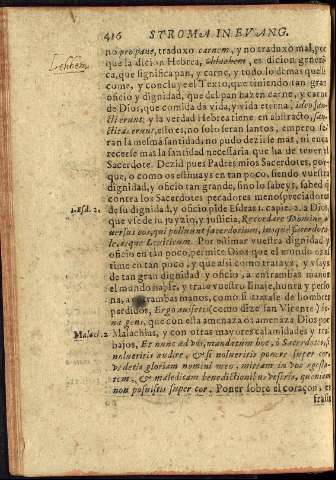 416 STROMA IN EVANG.
no pro pane, traduxo carnem, y no traduxo mal, por
que la dicion Hebrea, es dicion generi
ca, que significa pan, y carne, y todo lo demas que se
come, y concluye el Texto, que teniendo tan gran
oficio y dignidad, que del pan hazen carne, y carne
de Dios, que comida da vida, y vida eterna, ideo san-
cti erunt; y la verdad Hebrea tiene en abstracto, san-
ctitas erunt, esto es, no solo seran santos, empero se-
ran la mesma santidad, no pudo dezirse mas, ni enca
recerse mas la santidad necessaria que ha de tener el
Sacerdote. Dezid pues Padres mios Sacerdotes, por-
que, o como os estimays en tan poco, siendo vuestra
dignidad, y oficio tan grande, sino lo sabeys, sabed q
contra los Sacerdotes pecadores menospreciadores
de su dignidad, y oficio pide Esdras 1. capit. 2. a Dios
que use de su juyzio, y justicia, Recordare Domine ad
versus eos, qui polluunt sacerdotium, iusque sacerdota
le, atque Leviticum. Por estimar vuestra dignidad y
oficio en tan poco, permite Dios que el mundo os esti
me en tan poco, y que assi como tratays, y usays
de tan gran dignidad y oficio, a entrambas manos
el mundo os trate vuestro linaje, honra y perso
na, a entrambas manos, como si tratasse de hombres
perdidos, Ergo auferetis (como dize san Vicente)
gens, que con esta amenaza os amenaza Dios por
Malachias, y con otras mayores calamidades y tra
bajos. Et nunc ad vos, mandatum hoc, ô Sacerdotes, si
nolueritis audire, & si nolueritis ponere super cor,
ut detis gloriam nomini meo, mittam in vos egesta-
tem, & maledicam benedictionibus vestris, quoniam
non posuistis super cor. Poner sobre el coraçon, es
frasis
1. Esd. 2.
Malach. 2